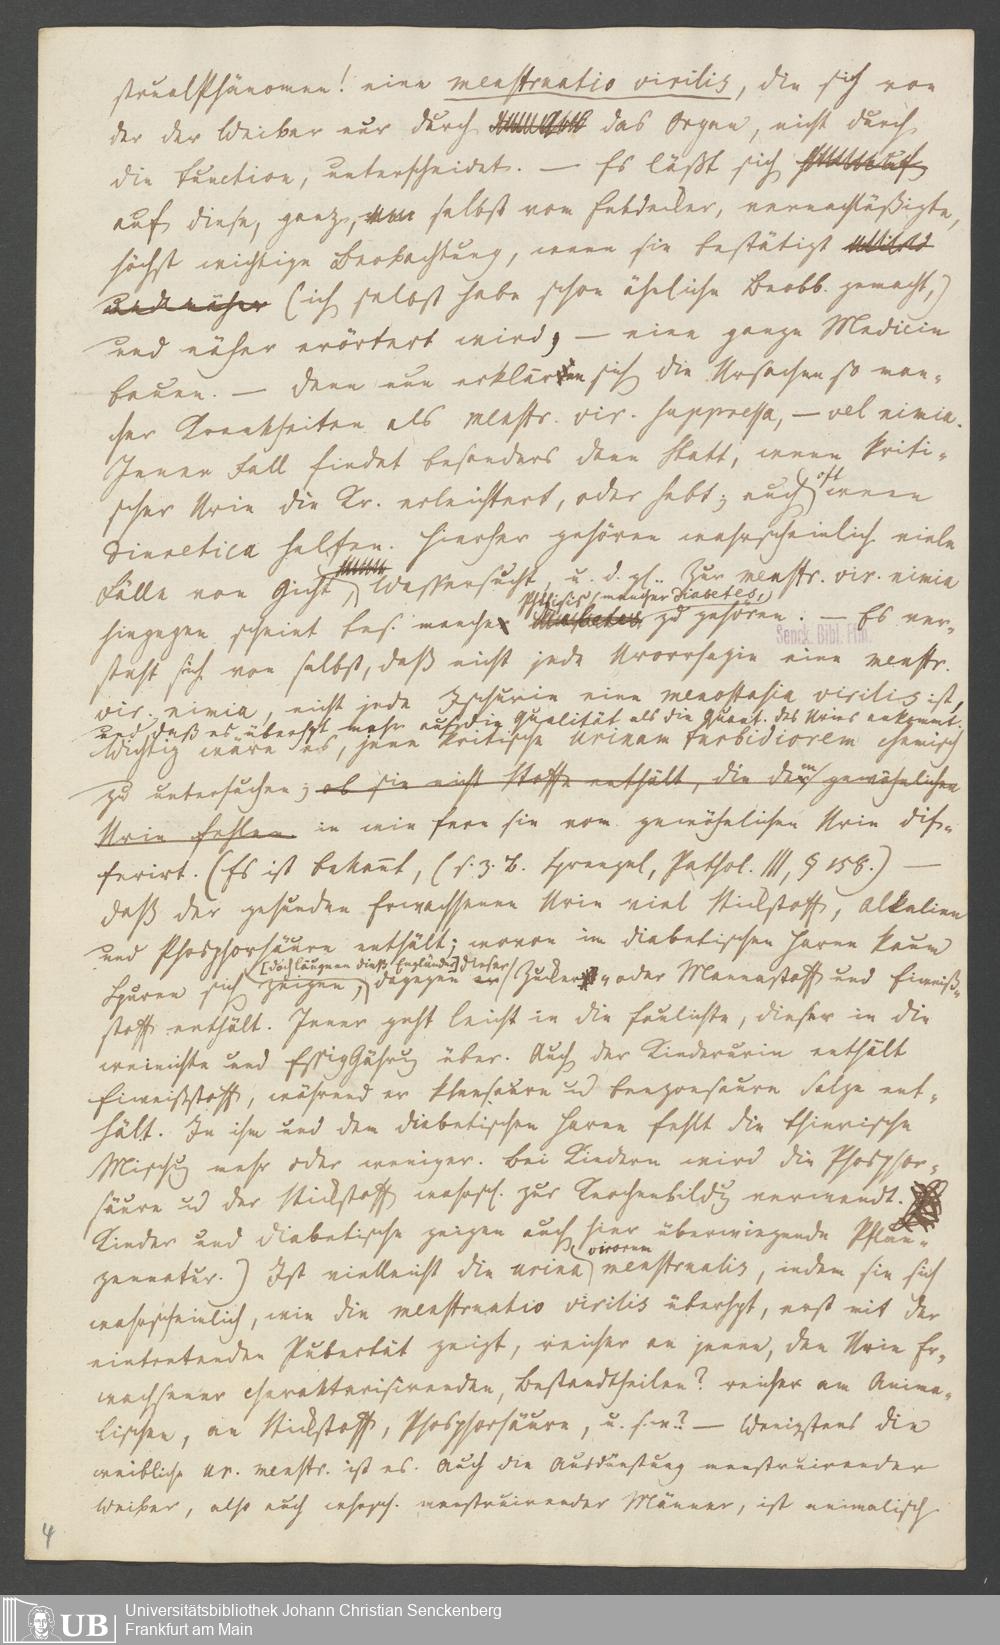 strualPhänomen! eine menstruatio virilis, die sich von
der der Weiber nur durch das Organ, nicht durch
die Function, unterscheidet. — Es läßt sich
auf diese, ganz, selbst vom Entdecker, vernachläßigte,
höchst wichtige Beobachtung, wenn sie bestätigt
und näher (ich selbst habe schon ähnliche Beobb. gemacht,)
und näher erörtert wird, — eine ganze Medicin
bauen. — Denn nun erklären sich die Ursachen so man-
cher Krankheiten als menstr. vir. suppressa, — vel nimia.
Jener Fall findet besonders dann statt, wenn kriti-
scher Urin die Kr. erleichtert, oder hebt; auch oft wenn
Diuretica helfen. Hierher gehören wahrscheinlich viele
Fälle von Gicht, Wassersucht, u. d. gl. Zur menstr. vir. nimia
Phthisis, mancher Diabetes,
hingegen scheint bes. manche Diabetes zu gehören. — Es ver-
Senck. Bibl. Ffm.
steht sich von selbst, daß nicht jede Urorrhagie eine menstr.
vir. nimia, nicht jede Ischurie eine menostasia virilis ist,
und daß es überhpt mehr auf die Qualität als die Quant. des Urins ankommt.
Wichtig wäre es, jene kritische Urinam turbidiorem chemisch
zu untersuchen; ob sie nicht Stoffe enthält, die dem gewöhnlichen
Urin fehlen. in wie fern sie vom gewöhnlichen Urin dif-
ferirt. (Es ist bekannt, (s. z. B. Sprengel, Pathol. III, § 158.) —
daß der gesunden Erwachsenen Urin viel Stickstoff, Alkalien
und Phosphorsäure enthält; wovon im diabetischen Harne kaum
[doch läugnen dieß Engländer] dieser
Spuren sich zeigen, dagegen er Zucker- oder Mannastoff und Eiweiß-
stoff enthält. Jener geht leicht in die faulichte, dieser in die
weinichte und EssigGährung über. Auch der Kinderurin enthält
Eiweisstoff, während er kleesaure und benzoesaure Salze ent-
hält. In ihm und dem diabetischen Harne fehlt die thierische
Mischung mehr oder weniger. Bei Kindern wird die Phosphor-
säure und der Stickstoff wahrsch. zur Knochenbildung verwendt.
Kinder und Diabetische zeigen auch hier überwiegende Pflan-
zennatur.) Ist vielleicht die urina virorum menstrualis, indem sie sich
wahrscheinlich, wie die menstruatio virilis überhpt, erst mit der
eintretenden Pubertät zeigt, reicher an jenen, den Urin Er-
wachsener charakterisirenden, Bestandtheilen? reicher am Anima-
lischen, an Stickstoff, Phosphorsäure, u. s. w.? — Wenigstens die
weibliche ur. menstr. ist es. Auch die Ausdünstung menstruirender
Weiber, also auch wahrsch. menstruirender Männer, ist animalisch
4
UB Universitätsbibliothek Johann Christian Senckenberg
Frankfurt am Main